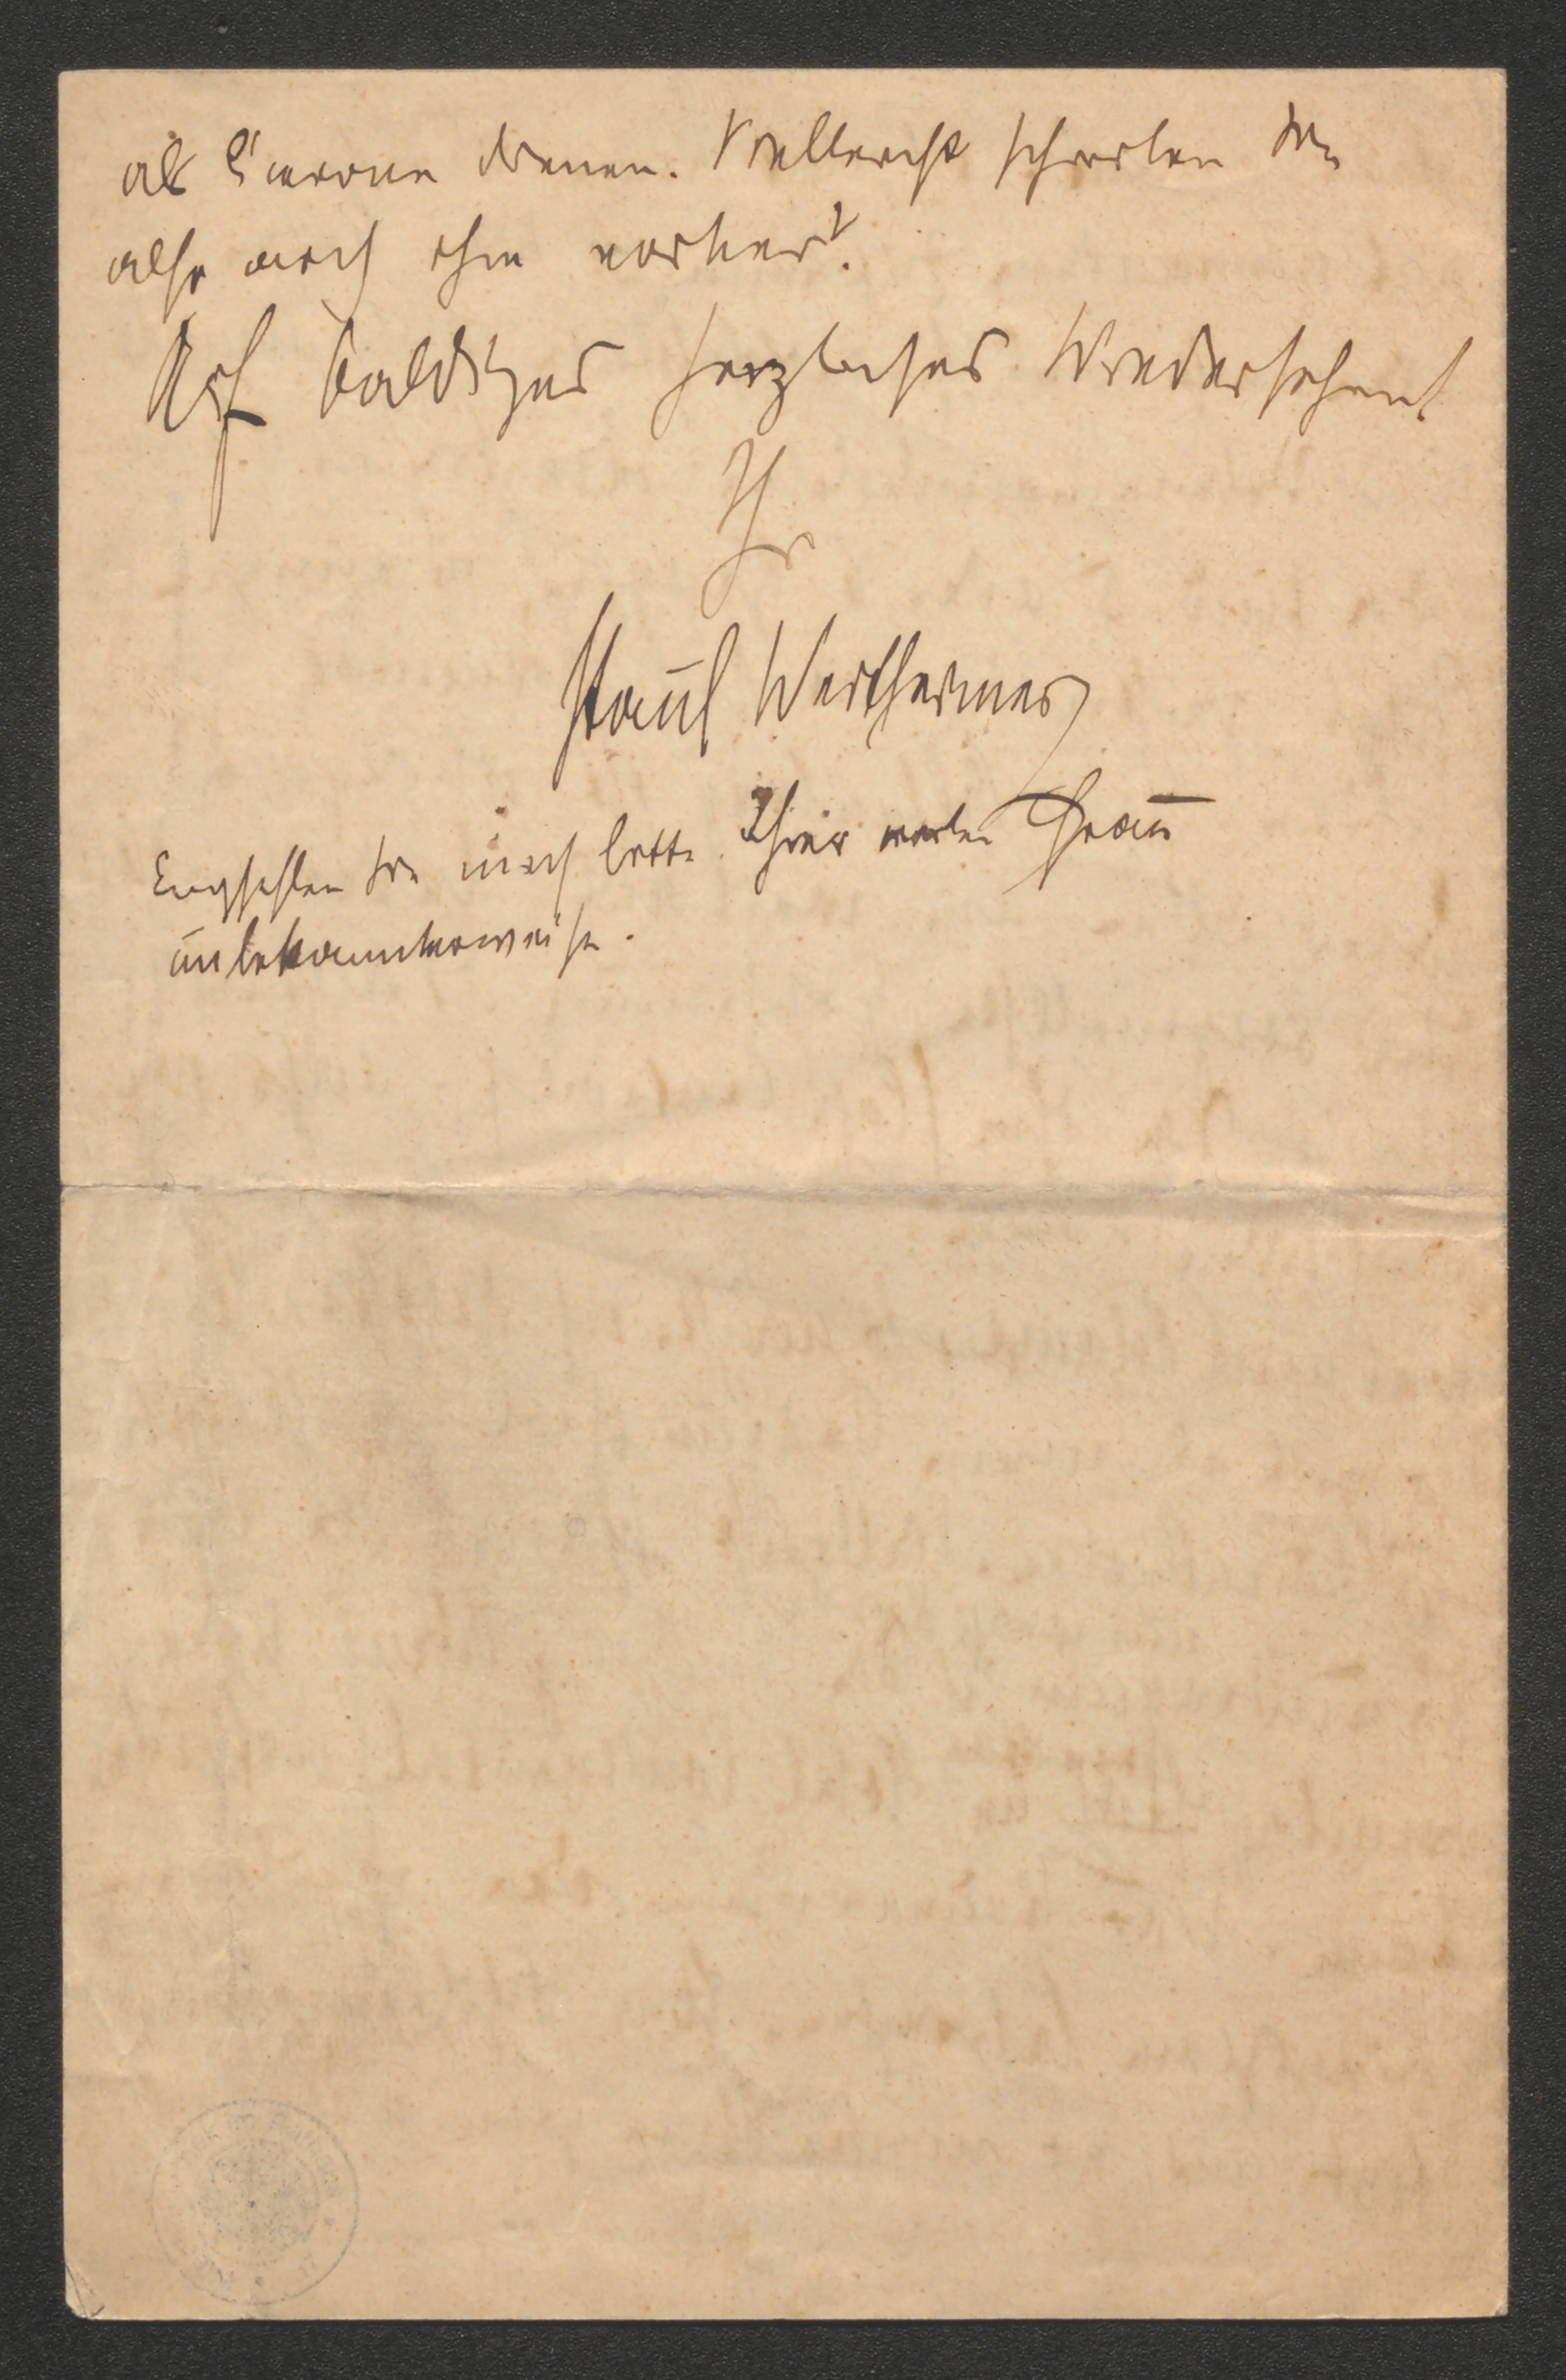 als Cicerone dienen. Vielleicht schreiben Sie
also auch ihm vorher?
Auf baldiges herzliches Wiedersehen!
Ihr
Paul Wertheimer
Empfehlen Sie mich bitte Ihrer werten Frau
unbekannterweise.